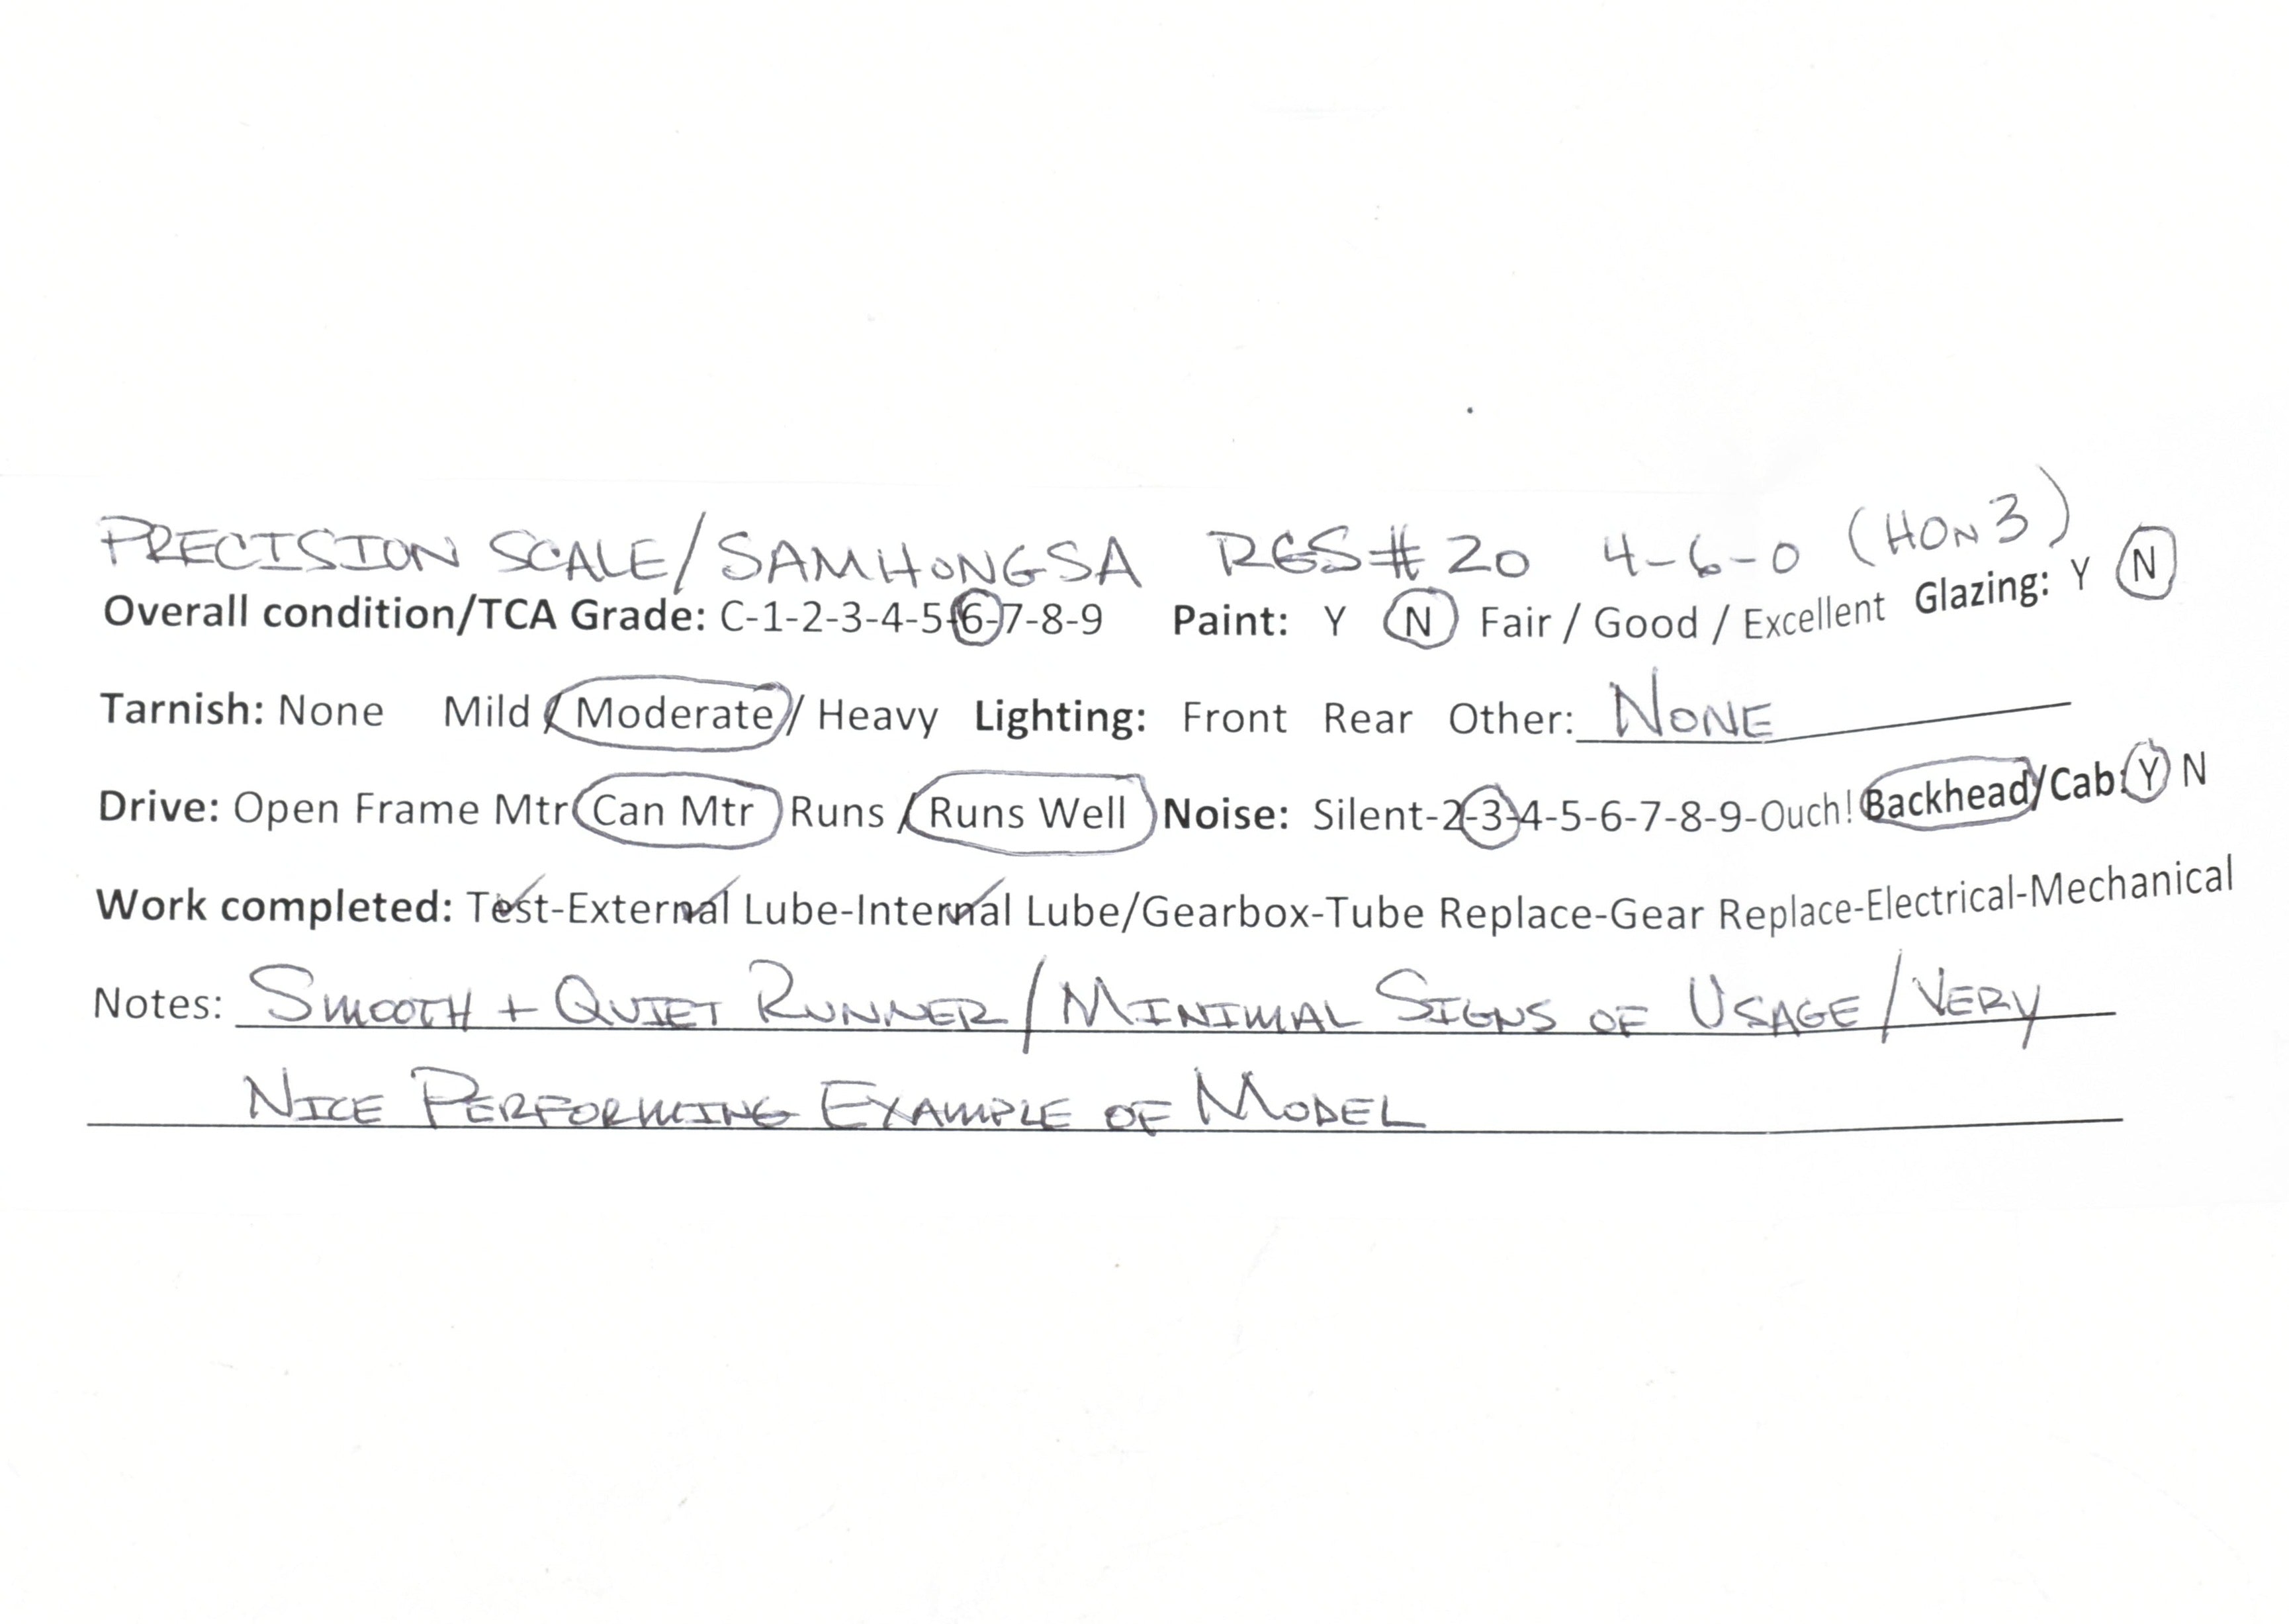 PRECISION SCALE/SAMHONGSA RGS# 20 4-6-0 (HON3)
Overall condition/TCA Grade: C-1-2-3-4-5-6-7-8-9 Paint: Y N Fair / Good / Excellent Glazing: Y N
Tarnish: None Mild / Moderate / Heavy Lighting: Front Rear Other: NONE
Drive: Open Frame Mtr Can Mtr Runs / Runs Well Noise: Silent-2-3-4-5-6-7-8-9-Ouch! Backhead/Cab: Y N
Work completed: Test-External Lube-Internal Lube/Gearbox-Tube Replace-Gear Replace-Electrical-Mechanical
Notes: SMOOTH + QUIET RUNNER / MINIMAL SIGNS OF USAGE / VERY
NICE PERFORMING EXAMPLE OF MODEL